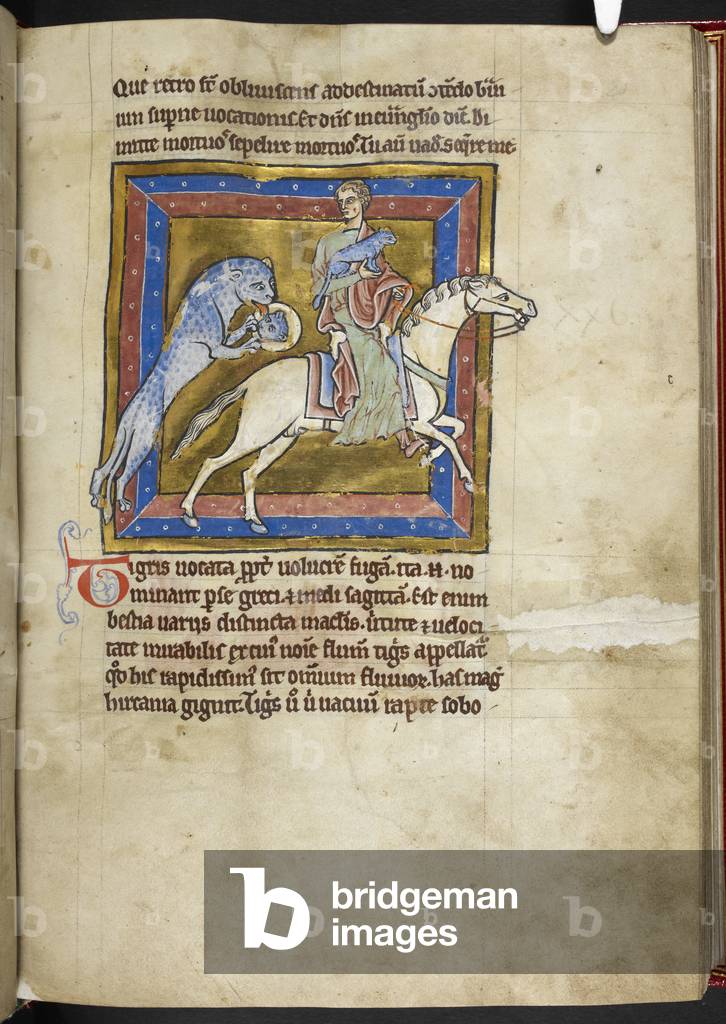 Que retro st̄ obliuiscens addestinatū ↄtēdo biui
um superne uocationis. Et dn̄s ineuuḡlio dic̄. Di
mitte mortuos sepelire mortuos. Tu aū uad. seq̄re me
Tigris uocata ppt̄ uolucrē fugā. ita n̄. no
minant pse greci. ⁊ medi sagittā. Est enim
bestia uarijs distincta maclis. uirtute ⁊ ueloci
tate mirabilis ex cui' noīe flum̄ tigs̄ appellat̄
qd̄ his rapidissim' sit om̄ium fluuior. has maḡ
hircania gignit. Tigs̄ u̇ u̇ uacuū rapte sobo
b bridgeman
images